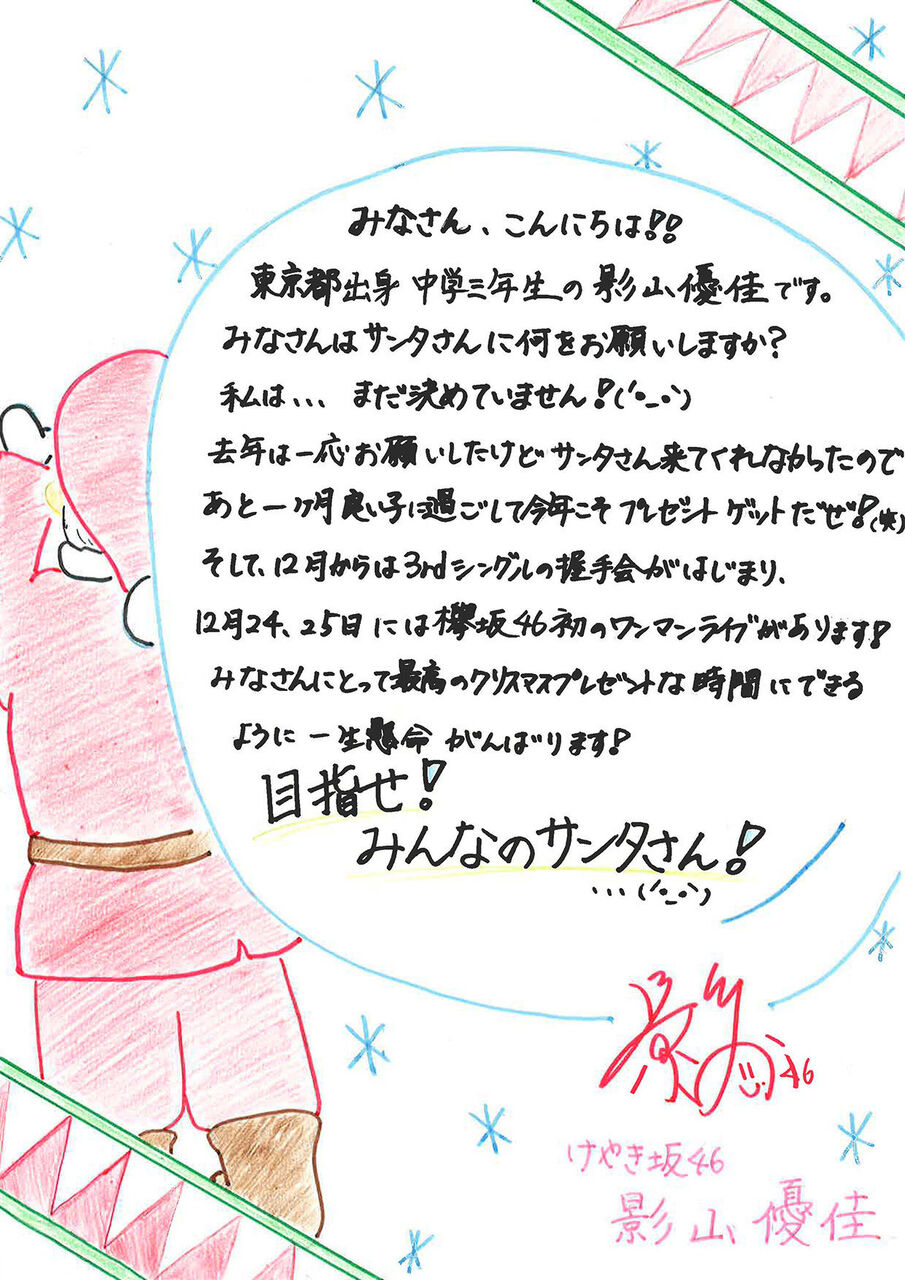 みなさん、こんにちは!!
東京都出身 中学三年生の影山優佳です。
みなさんはサンタさんに何をお願いしますか?
私は... まだ決めていません!('•_•')
去年は一応お願いしたけどサンタさん来てくれなかったので
あと一ヶ月良い子に過ごして今年こそプレゼントゲットだぜ!(笑)
そして、12月からは3rdシングルの握手会がはじまり、
12月24、25日には欅坂46初のワンマンライブがあります!
みなさんにとって最高のクリスマスプレゼントな時間にできる
ように一生懸命がんばります!
目指せ!
みんなのサンタさん!
...('•_•')
影
46
けやき坂46
影山優佳